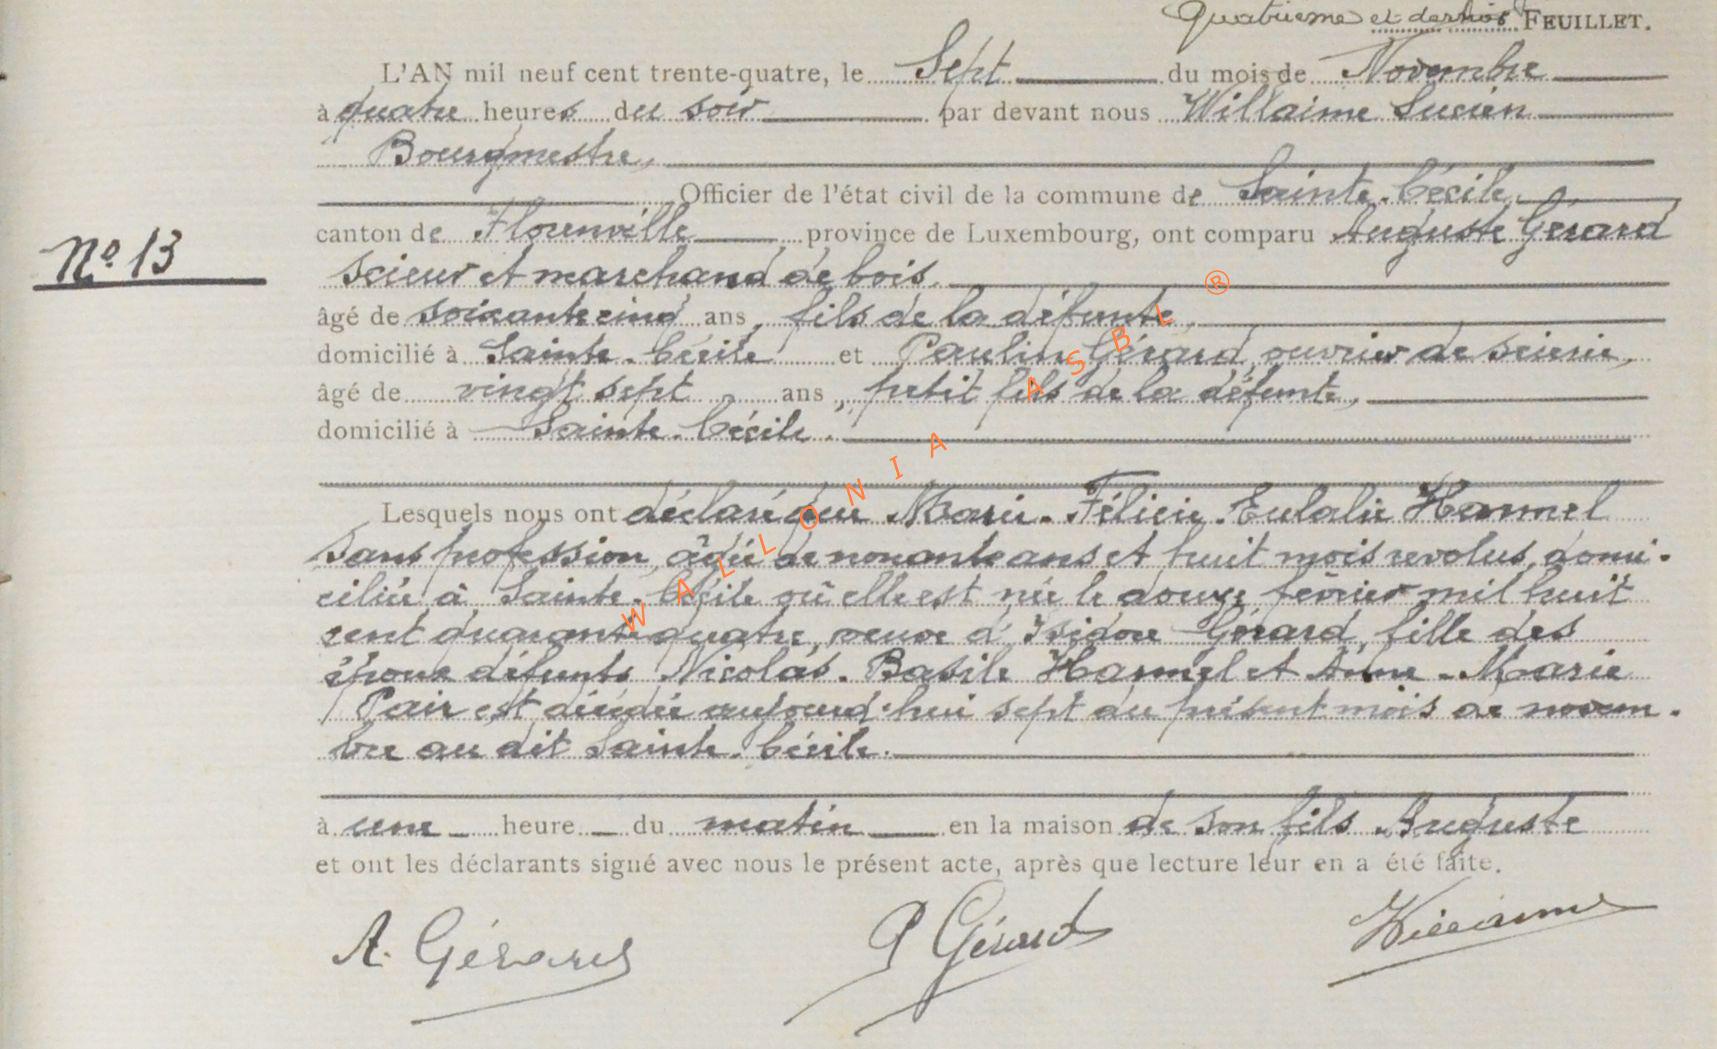 Quatrième et dernier FEUILLET.
L'AN mil neuf cent trente-quatre, le Sept du mois de Novembre
à quatre heures du soir par devant nous Willaime Lucien
Bourgmestre,
Officier de l'état civil de la commune de Sainte-Cécile
N° 13
canton de Florenville province de Luxembourg, ont comparu Auguste Gérard
scieur et marchand de bois.
âgé de soixante cinq ans, fils de la défunte,
domicilié à Sainte-Cécile et Paulin Gérard, ouvrier de scierie,
âgé de vingt sept ans, petit fils de la défunte,
domicilié à Sainte-Cécile.
Lesquels nous ont déclaré que Marie-Félicie-Eulalie Hammel
sans profession, âgée de nonante ans et huit mois revolus, domi-
ciliée à Sainte-Cécile où elle est née le douze février mil huit
cent quarante quatre, veuve d'Isidore Gérard, fille des
époux défunts Nicolas-Basile Hammel et Anne-Marie
Pair est décédée aujourd'hui sept du présent mois de novem-
bre au dit Sainte-Cécile.
à une heure du matin en la maison de son fils Auguste
et ont les déclarants signé avec nous le présent acte, après que lecture leur en a été faite.
A. Gérard P Gérard Willaime
WALLONIA ASBL ®